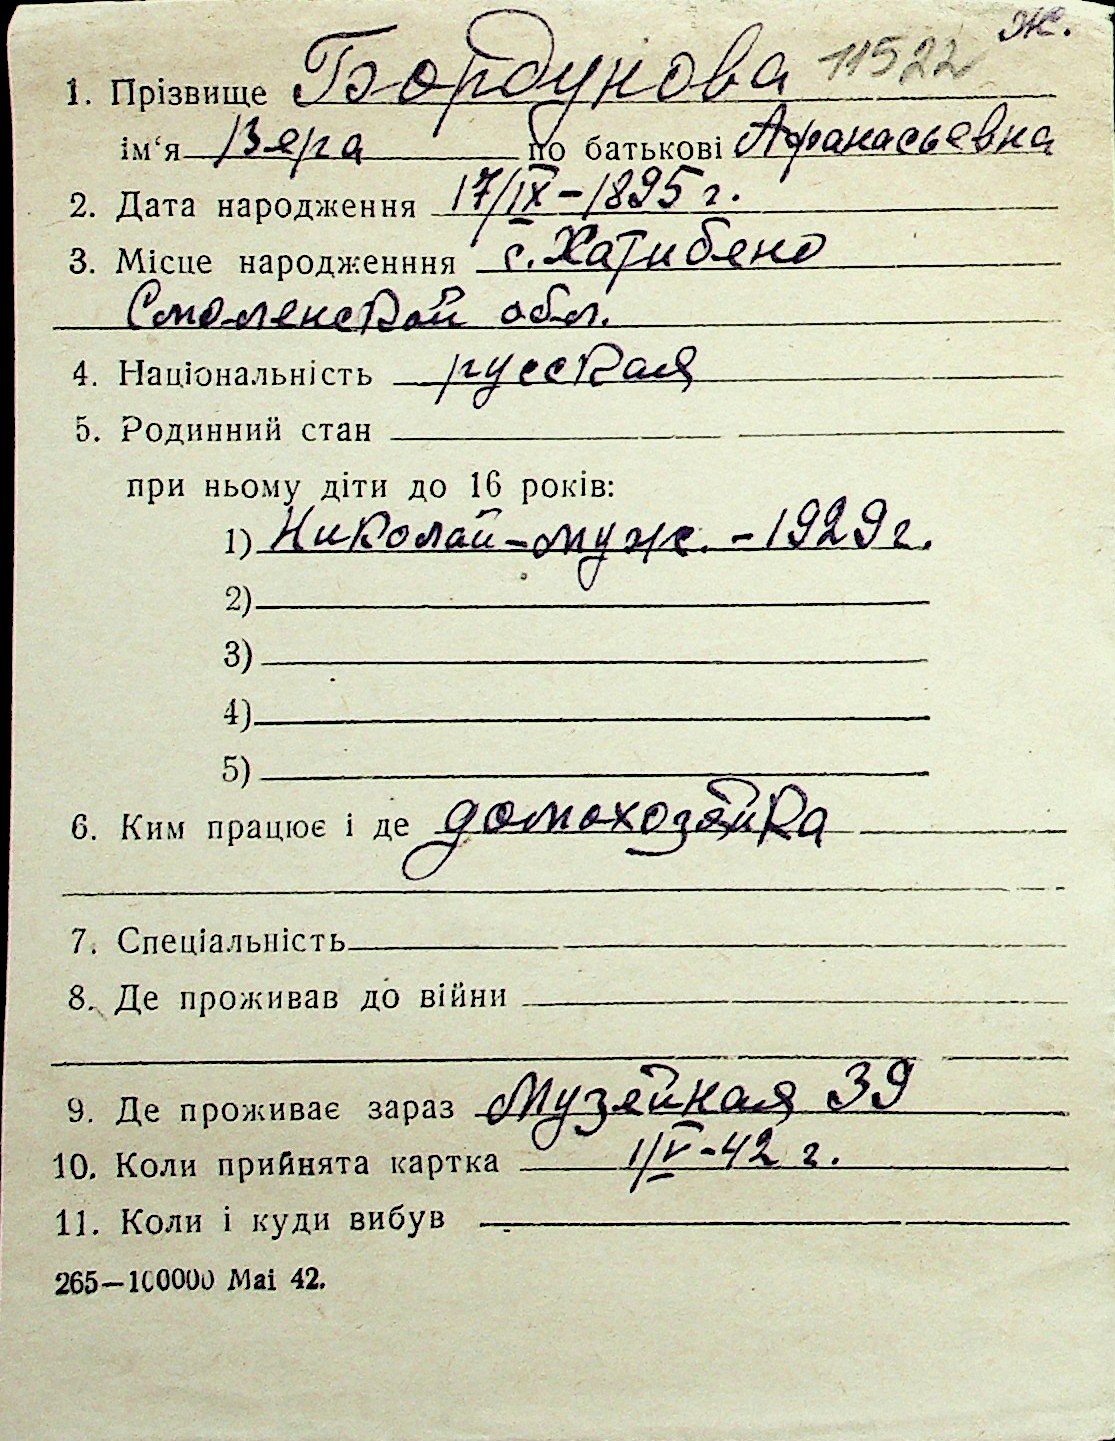 ж.
1. Прізвище Бордунова 11522
ім‘я Вера по батькові Афанасьевна
2. Дата народження 17/IX-1895 г.
3. Місце народженння с. Хатибено
Смоленской обл.
4. Національність русская
5. Родинний стан
при ньому діти до 16 років:
1) Николай-муж. -1929 г.
2)
3)
4)
5)
6. Ким працює і де домохозяйка
7. Спеціальність
8. Де проживав до війни
9. Де проживає зараз Музейная 39
10. Коли прийнята картка 1/V-42 г.
11. Коли і куди вибув
265—100000 Mai 42.